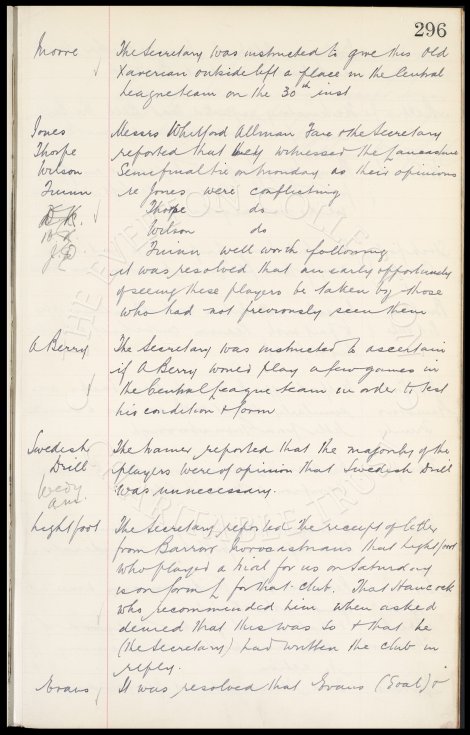 296
Moore The Secretary was instructed to give this Old
Xaverian outside left a place in the Central
League team on the 30th inst
Jones Messrs Whitford Allman Fare & the Secretary
Thorpe reported that they witnessed the Lancashire
Wilson Semifinal tie on Monday as their opinions
re Jones were conflicting
Thorpe do
Wilson do
well worth following
it was resolved that an early opportunity
of seeing these players be taken by those
who had not previously seen them
A Berry The Secretary was instructed to ascertain
if A Berry would play a few games in
the Central League team in order to test
his condition & form
Swedish The trainer reported that the majority of the
Drill players were of opinion that Swedish Drill
was unnecessary.
Lightfoot The Secretary reported the receipt of letter
from Barrow Novocastrians that Lightfoot
who played a trial for us on Saturday
is on form for that club. That Hancock
who recommended him when asked
denied that this was so & that he
(the Secretary) had written the club in
reply.
Evans It was resolved that Evans (Goal) o
THE EVERTON COLLECTION
CHARITABLE TRUST